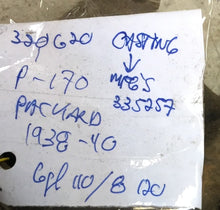 329620 CASTING
↓
P-170 MFG'S
PACKARD 335257
1938-40
6cyl 110/8 120